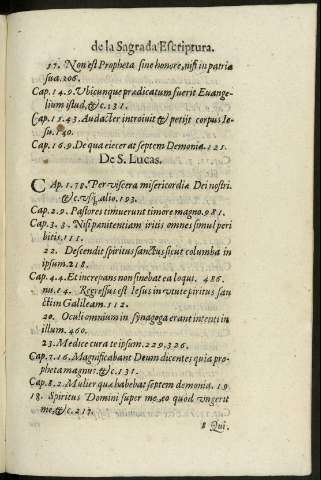 de la Sagrada Escriptura.
17. Non est Propheta sine honore, nisi in patria
sua. 206.
Cap. 14. 9. Vbicunque prædicatum fuerit Euange-
lium istud, &c. 131.
Cap. 15. 43. Audacter introiuit & petijt corpus Ie-
su.
Cap. 16. 9. De qua eiecerat septem Demonia. 121.
De S. Lucas.
CAp. 1. 78. Per viscera misericordiæ Dei nostri.
&c. vsq; alio. 193.
Cap. 2. 9. Pastores timuerunt timore magno. 981.
Cap. 3. 3. Nisi pænitentiam iritis omnes simul peri
bitis. 111.
22. Descendit spiritus sanctus sicut columba in
ipsum. 218.
Cap. 4. 4. Et increpans non sinebat ea loqui. 486.
nu. 14. Regressus est Iesus in virtute spiritus san
cti in Galileam. 112.
20. Oculi omnium in synagoga erant intenti in
illum. 460.
23. Medice cura te ipsum. 229. 326.
Cap. 7. 16. Magnificabant Deum dicentes quia pro-
pheta magnus &c. 131.
Cap. 8. 2. Mulier quæ habebat septem demonia. 19
18. Spiritus Domini super me, eo quod vngerit
me, &c. 217.
Qui.